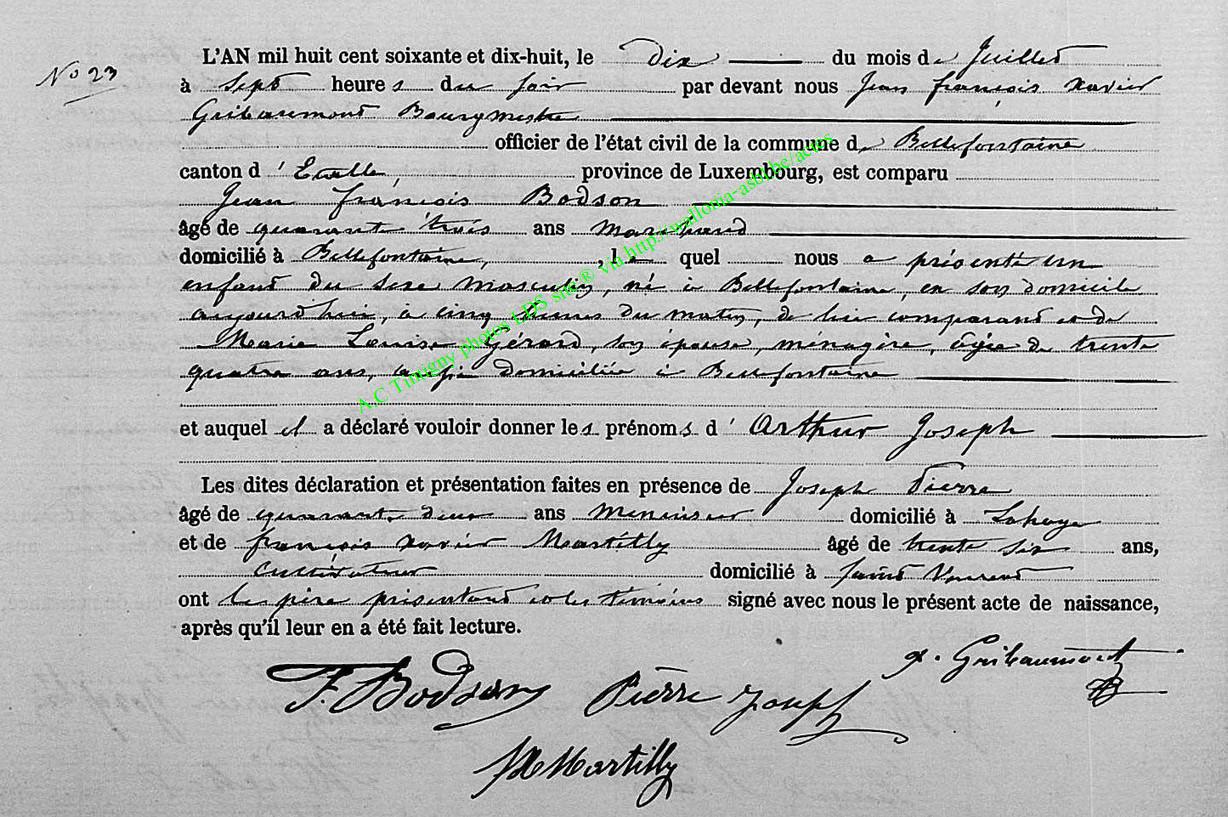 No 23
L'AN mil huit cent soixante et dix-huit, le dix du mois de Juillet
à sept heures du soir par devant nous Jean françois xavier
Gribaumont Bourgmestre
officier de l'état civil de la commune de Bellefontaine
canton d'Etalle, province de Luxembourg, est comparu
Jean françois Bodson
âgé de quarante trois ans marchand
domicilié à Bellefontaine, , le quel nous a présenté un
enfant du sexe masculin, né à Bellefontaine, en son domicile
aujourd'hui, à cinq heures du matin, de lui comparant et de
Marie Louise Gérard, son épouse, ménagère, âgée de trente
quatre ans, domiciliée à Bellefontaine
et auquel il a déclaré vouloir donner les prénoms d'Arthur Joseph
Les dites déclaration et présentation faites en présence de Joseph Pierre
âgé de quarante deux ans menuisier domicilié à Lahage
et de françois xavier Martilly âgé de trente six ans,
cultivateur domicilié à saint Vincent
ont le père présentant et les témoins signé avec nous le présent acte de naissance,
après qu'il leur en a été fait lecture.
x. Gribaumont
F. Bodson Pierre Joseph
Martilly
A.C Tintigny photos LDS site ® via http://wallonia-asbl.be/actes